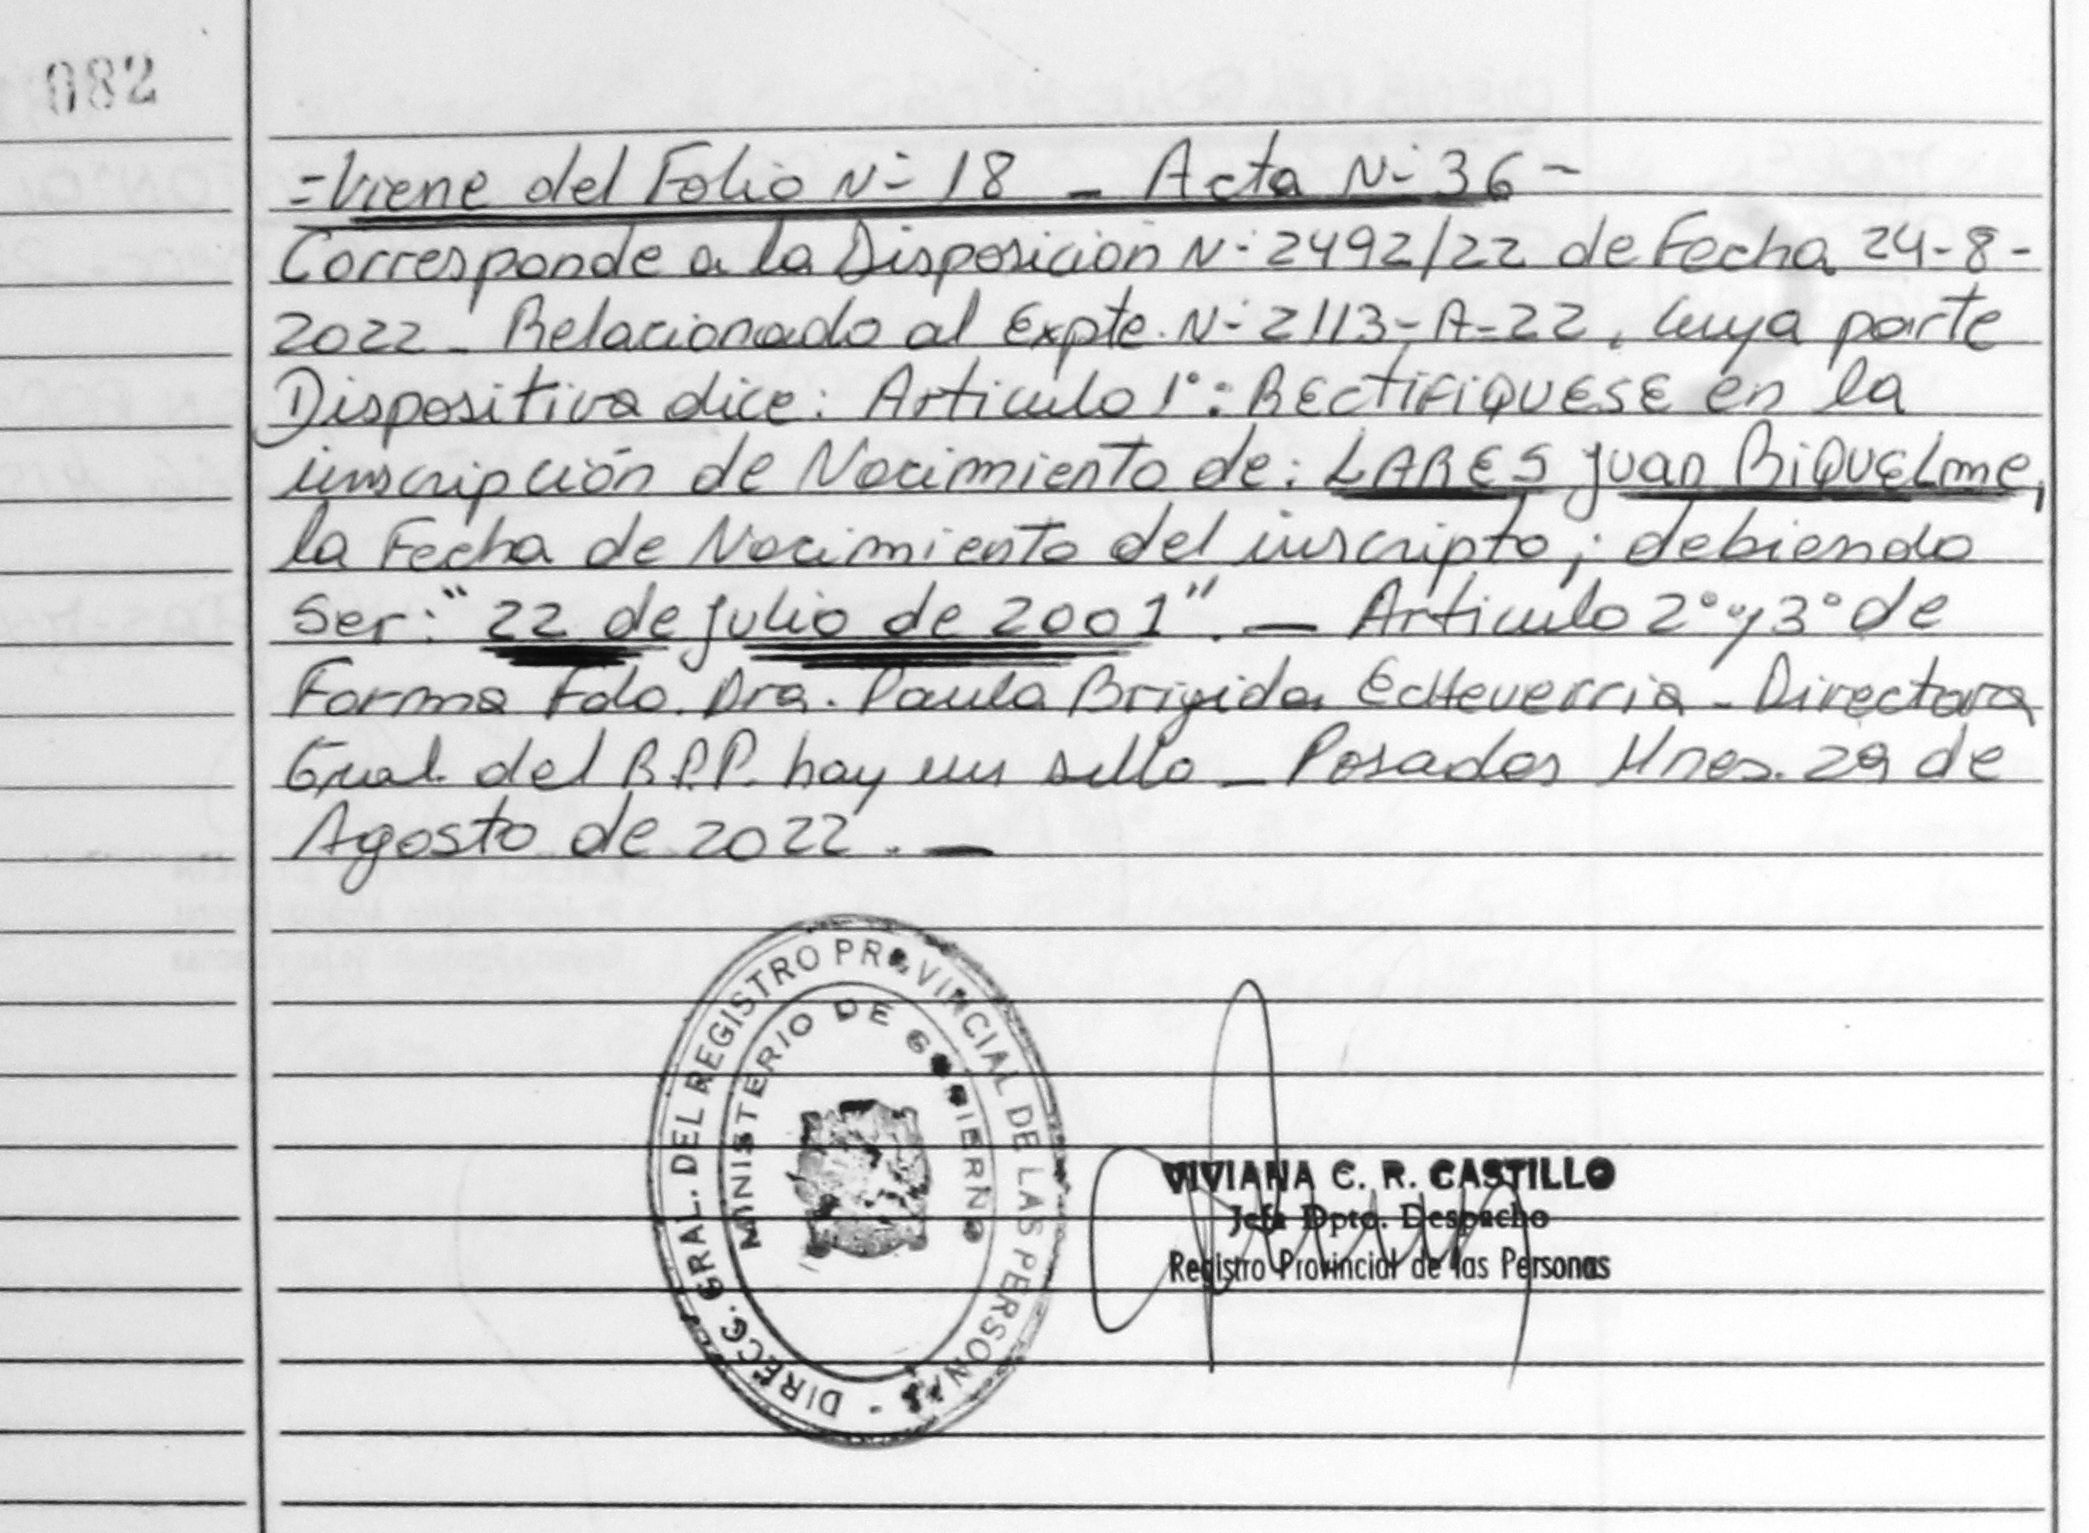 082
=Viene del Folio N- 18 - Acta N- 36 -
Corresponde a la Disposición N- 2492/22 de Fecha 24-8-
2022 - Relacionado al Expte. N- 2113-A-22, cuya parte
Dispositiva dice: Articulo 1°: RECTIFIQUESE en la
inscripción de Nacimiento de: LARES Juan RIQUELME,
la Fecha de Nacimiento del inscripto; debiendo
Ser: "22 de julio de 2001". — Articulo 2° y 3° de
Forma Fdo. Dra. Paula Brigida Echeverria - Directora
Gral. del R.P.P. hay un sello - Posadas Mnes. 29 de
Agosto de 2022. —
DIRECC. GRAL. DEL REGISTRO PROVINCIAL DE LAS PERSONAS -
MINISTERIO DE GOBIERNO
VIVIANA C. R. CASTILLO
Jefa Dpto. Despacho
Registro Provincial de las Personas